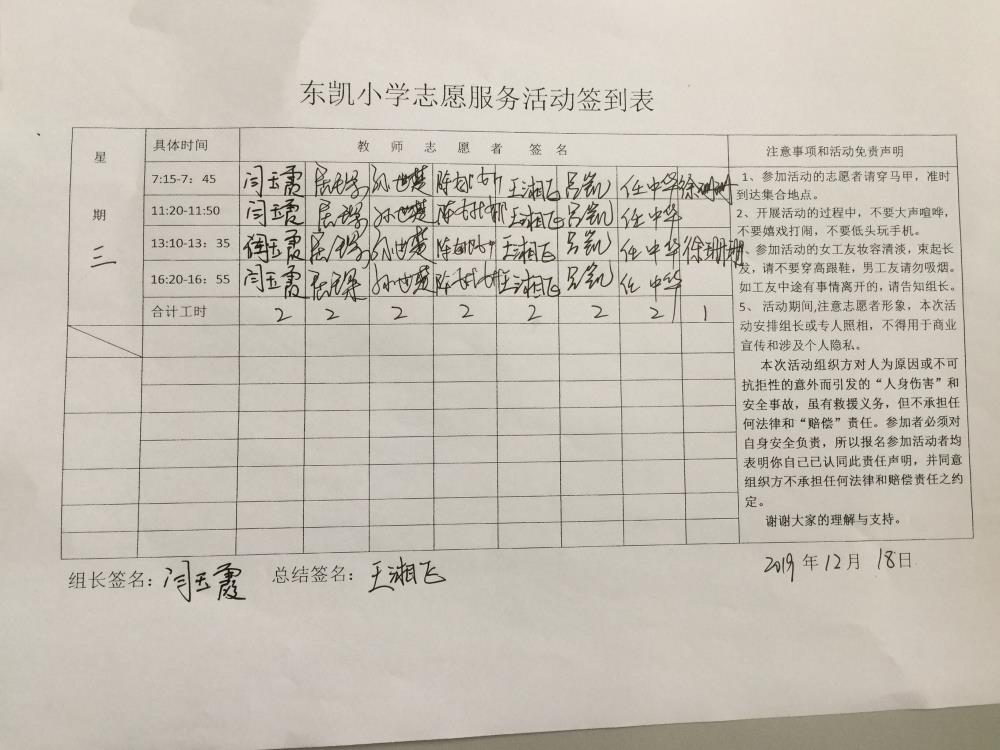 东凯小学志愿服务活动签到表
星期三
具体时间 教师志愿者签名 注意事项和活动免责声明
7:15-7：45 闫玉霞 孙世楚 王湘飞 吕凯 任中华 徐珊珊
11:20-11:50 闫玉霞 孙世楚 王湘飞 吕凯 任中华
13:10-13：35 闫玉霞 孙世楚 王湘飞 吕凯 任中华 徐珊珊
16:20-16：55 闫玉霞 孙世楚 王湘飞 吕凯 任中华
合计工时 2 2 2 2 2 2 2 1
1、参加活动的志愿者请穿马甲，准时
到达集合地点。
2、开展活动的过程中，不要大声喧哗，
不要嬉戏打闹，不要低头玩手机。
、参加活动的女工友妆容清淡，束起长
发，请不要穿高跟鞋，男工友请勿吸烟。
如工友中途有事情离开的，请告知组长。
5、活动期间,注意志愿者形象，本次活
动安排组长或专人照相，不得用于商业
宣传和涉及个人隐私。
本次活动组织方对人为原因或不可
抗拒性的意外而引发的“人身伤害”和
安全事故，虽有救援义务，但不承担任
何法律和“赔偿”责任。参加者必须对
自身安全负责，所以报名参加活动者均
表明你自己已认同此责任声明，并同意
组织方不承担任何法律和赔偿责任之约
定。
谢谢大家的理解与支持。
组长签名：闫玉霞 总结签名：王湘飞
2019年12月18日